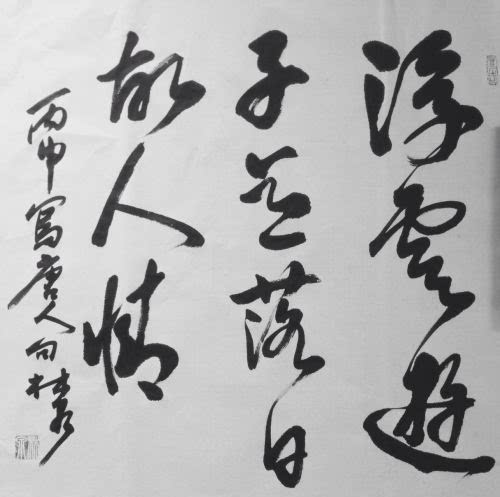 浮雲遊
子意落日
故人情
丙申寫唐人句